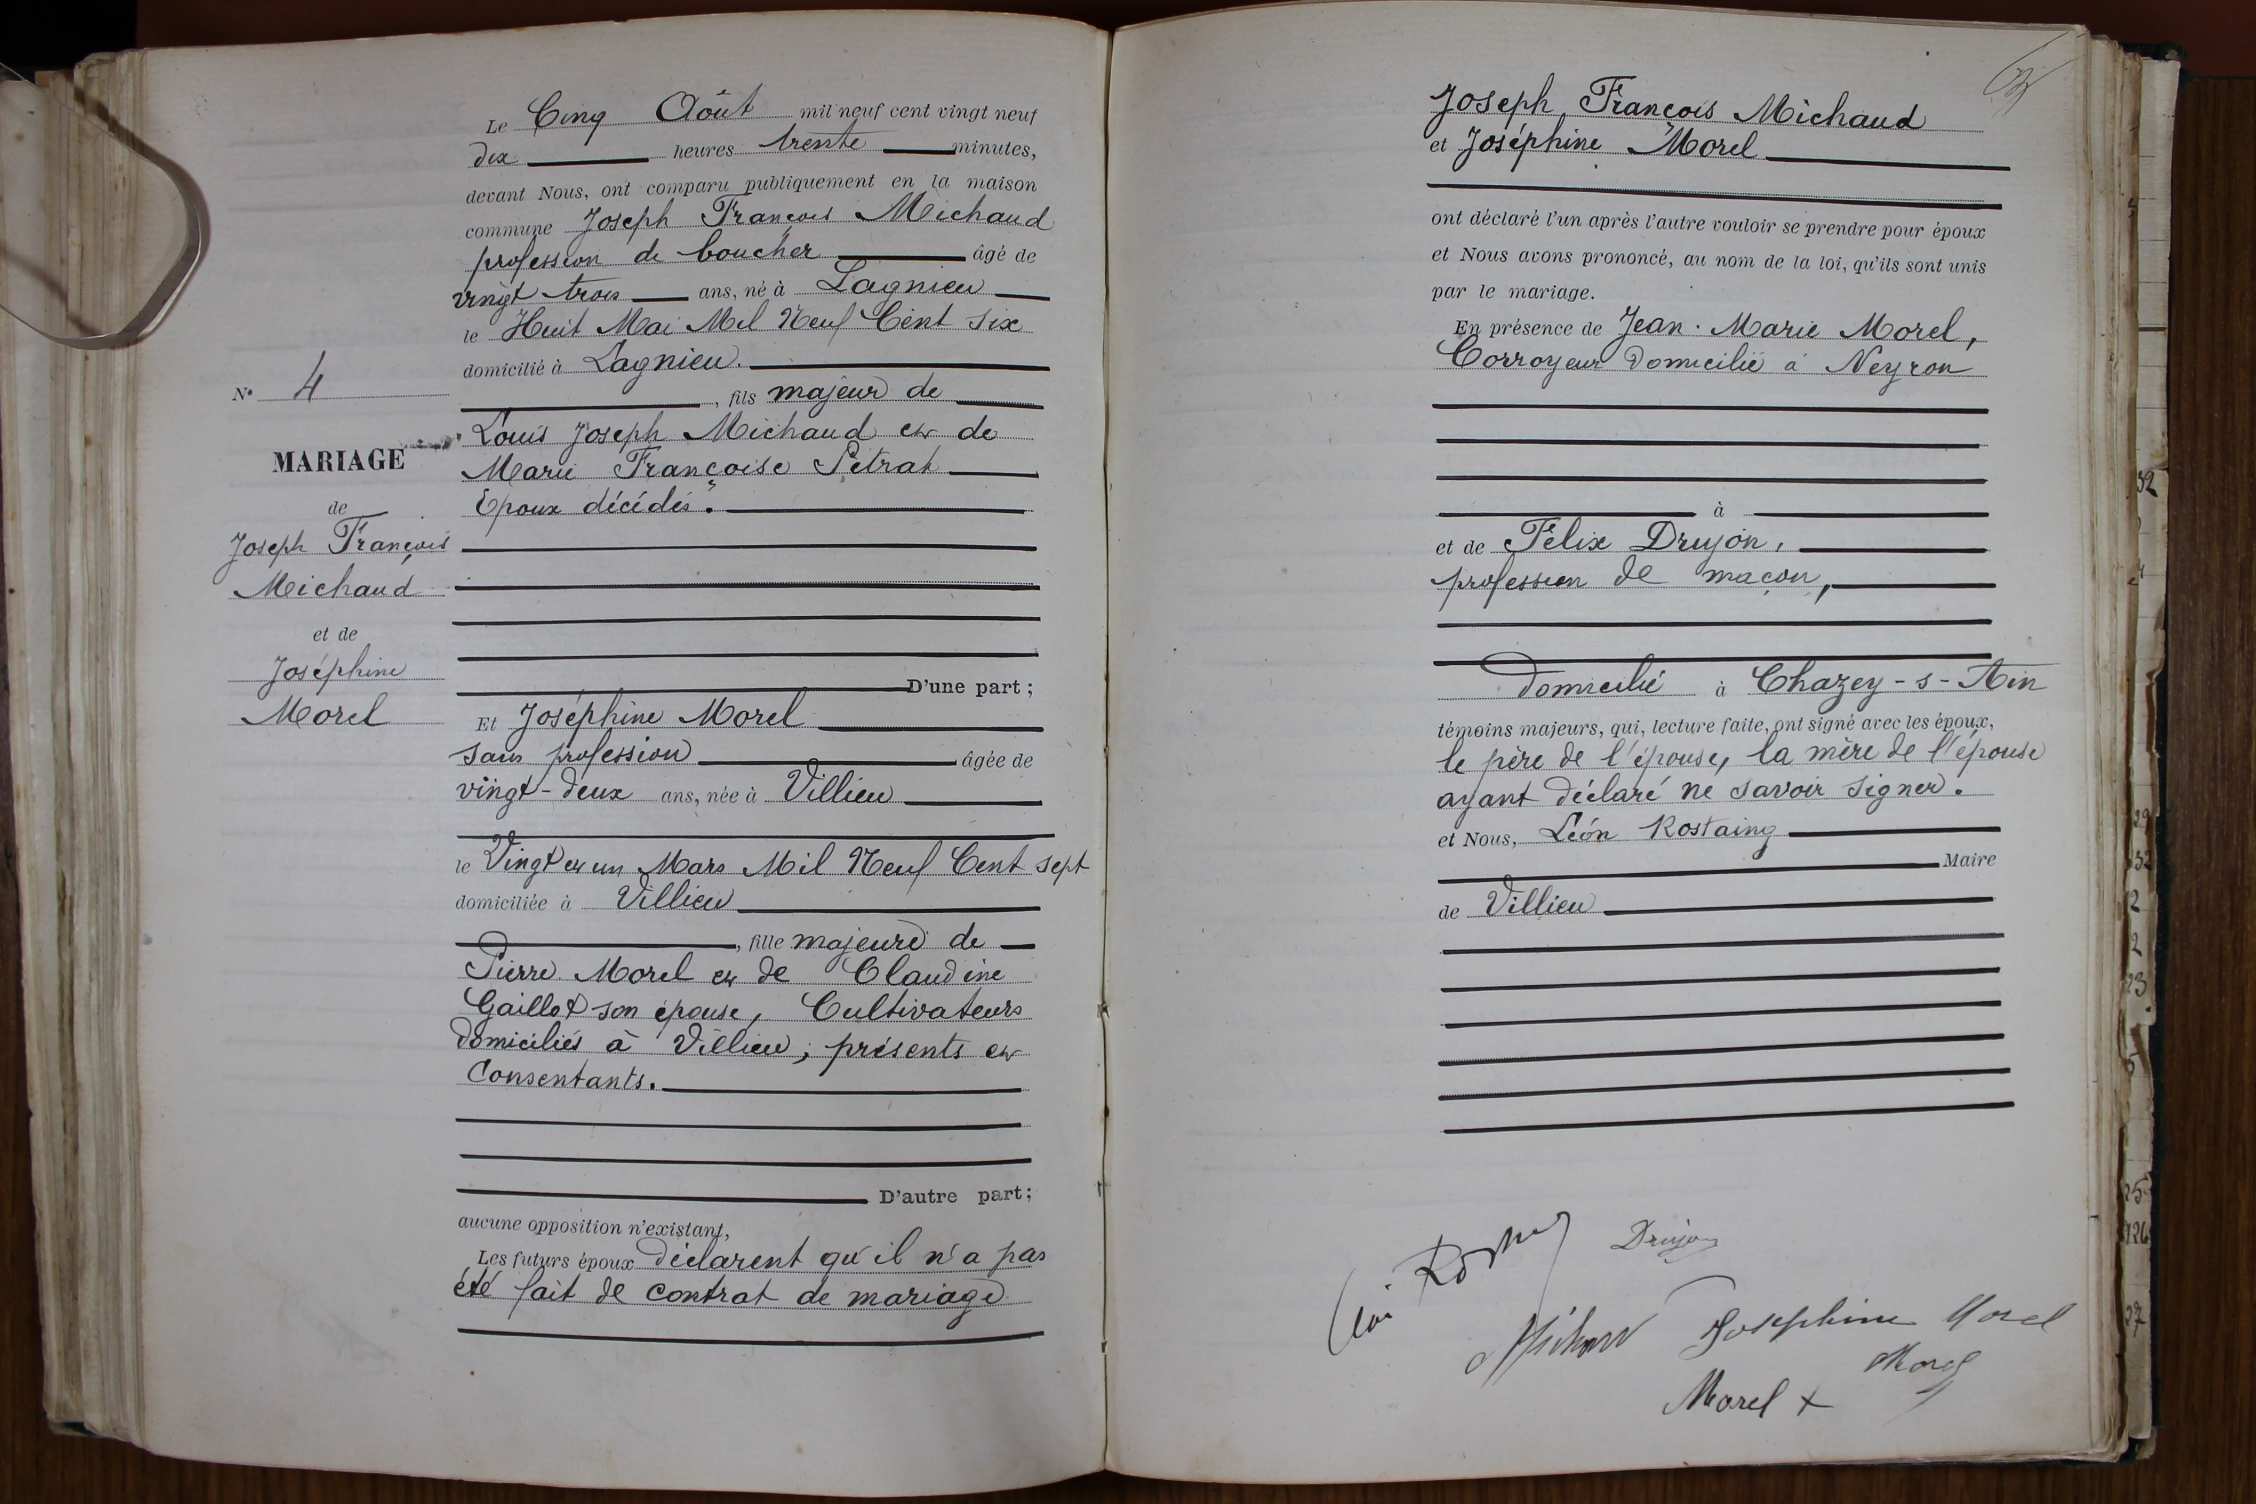 Le Cinq Août mil neuf cent vingt neuf
dix heures trente minutes,
devant Nous, ont comparu publiquement en la maison
commune Joseph François Michaud
profession de boucher âgé de
vingt trois ans, né à Lagnieu
le Huit Mai Mil Neuf Cent Six
domicilié à Lagnieu.
, fils majeur de
Louis Joseph Michaud et de
Marie Françoise Petrat
Epoux décédés.
D'une part;
Et Joséphine Morel
sans profession âgée de
vingt-deux ans, née à Villieu
le Vingt et un Mars Mil Neuf Cent sept
domiciliée à Villieu
, fille majeure de
Pierre Morel et de Claudine
Gaillot son épouse, Cultivateurs
domiciliés à Villieu, présents et
Consentants.
D'autre part;
aucune opposition n'existant,
Les futurs époux déclarent qu'il n'a pas
été fait de contrat de mariage
N° 4
MARIAGE
de
Joseph François
Michaud
et de
Joséphine
Morel
Joseph François Michaud
et Joséphine Morel
ont déclaré l'un après l'autre vouloir se prendre pour époux
et Nous avons prononcé, au nom de la loi, qu'ils sont unis
par le mariage.
En présence de Jean-Marie Morel,
Corroyeur domicilié à Neyron
à
et de Félix Drujon,
profession de maçon,
domicilié à Chazey-s-Ain
témoins majeurs, qui, lecture faite, ont signé avec les époux,
le père de l'épouse, la mère de l'épouse
ayant déclaré ne savoir signer.
et Nous, Léon Rostaing
Maire
de Villieu
Drujon
Josephine Morel
Morel
Morel +